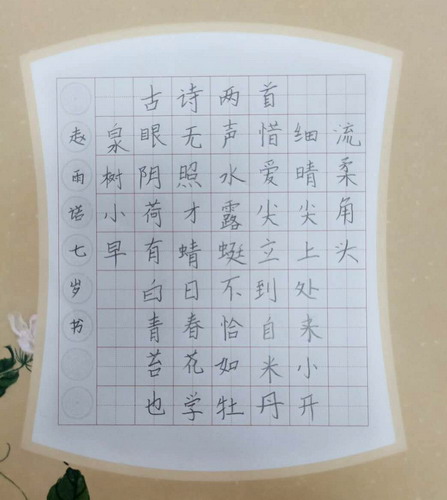 古诗两首
泉眼无声惜细流
树阴照水爱晴柔
小荷才露尖尖角
早有蜻蜓立上头
白日不到处
青春恰自来
苔花如米小
也学牡丹开
赵雨培七岁书